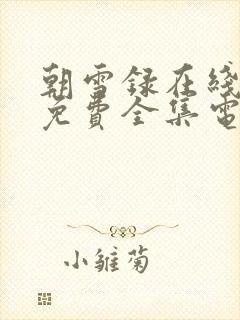 朝雪録在綫
免費全集電
小雛菊